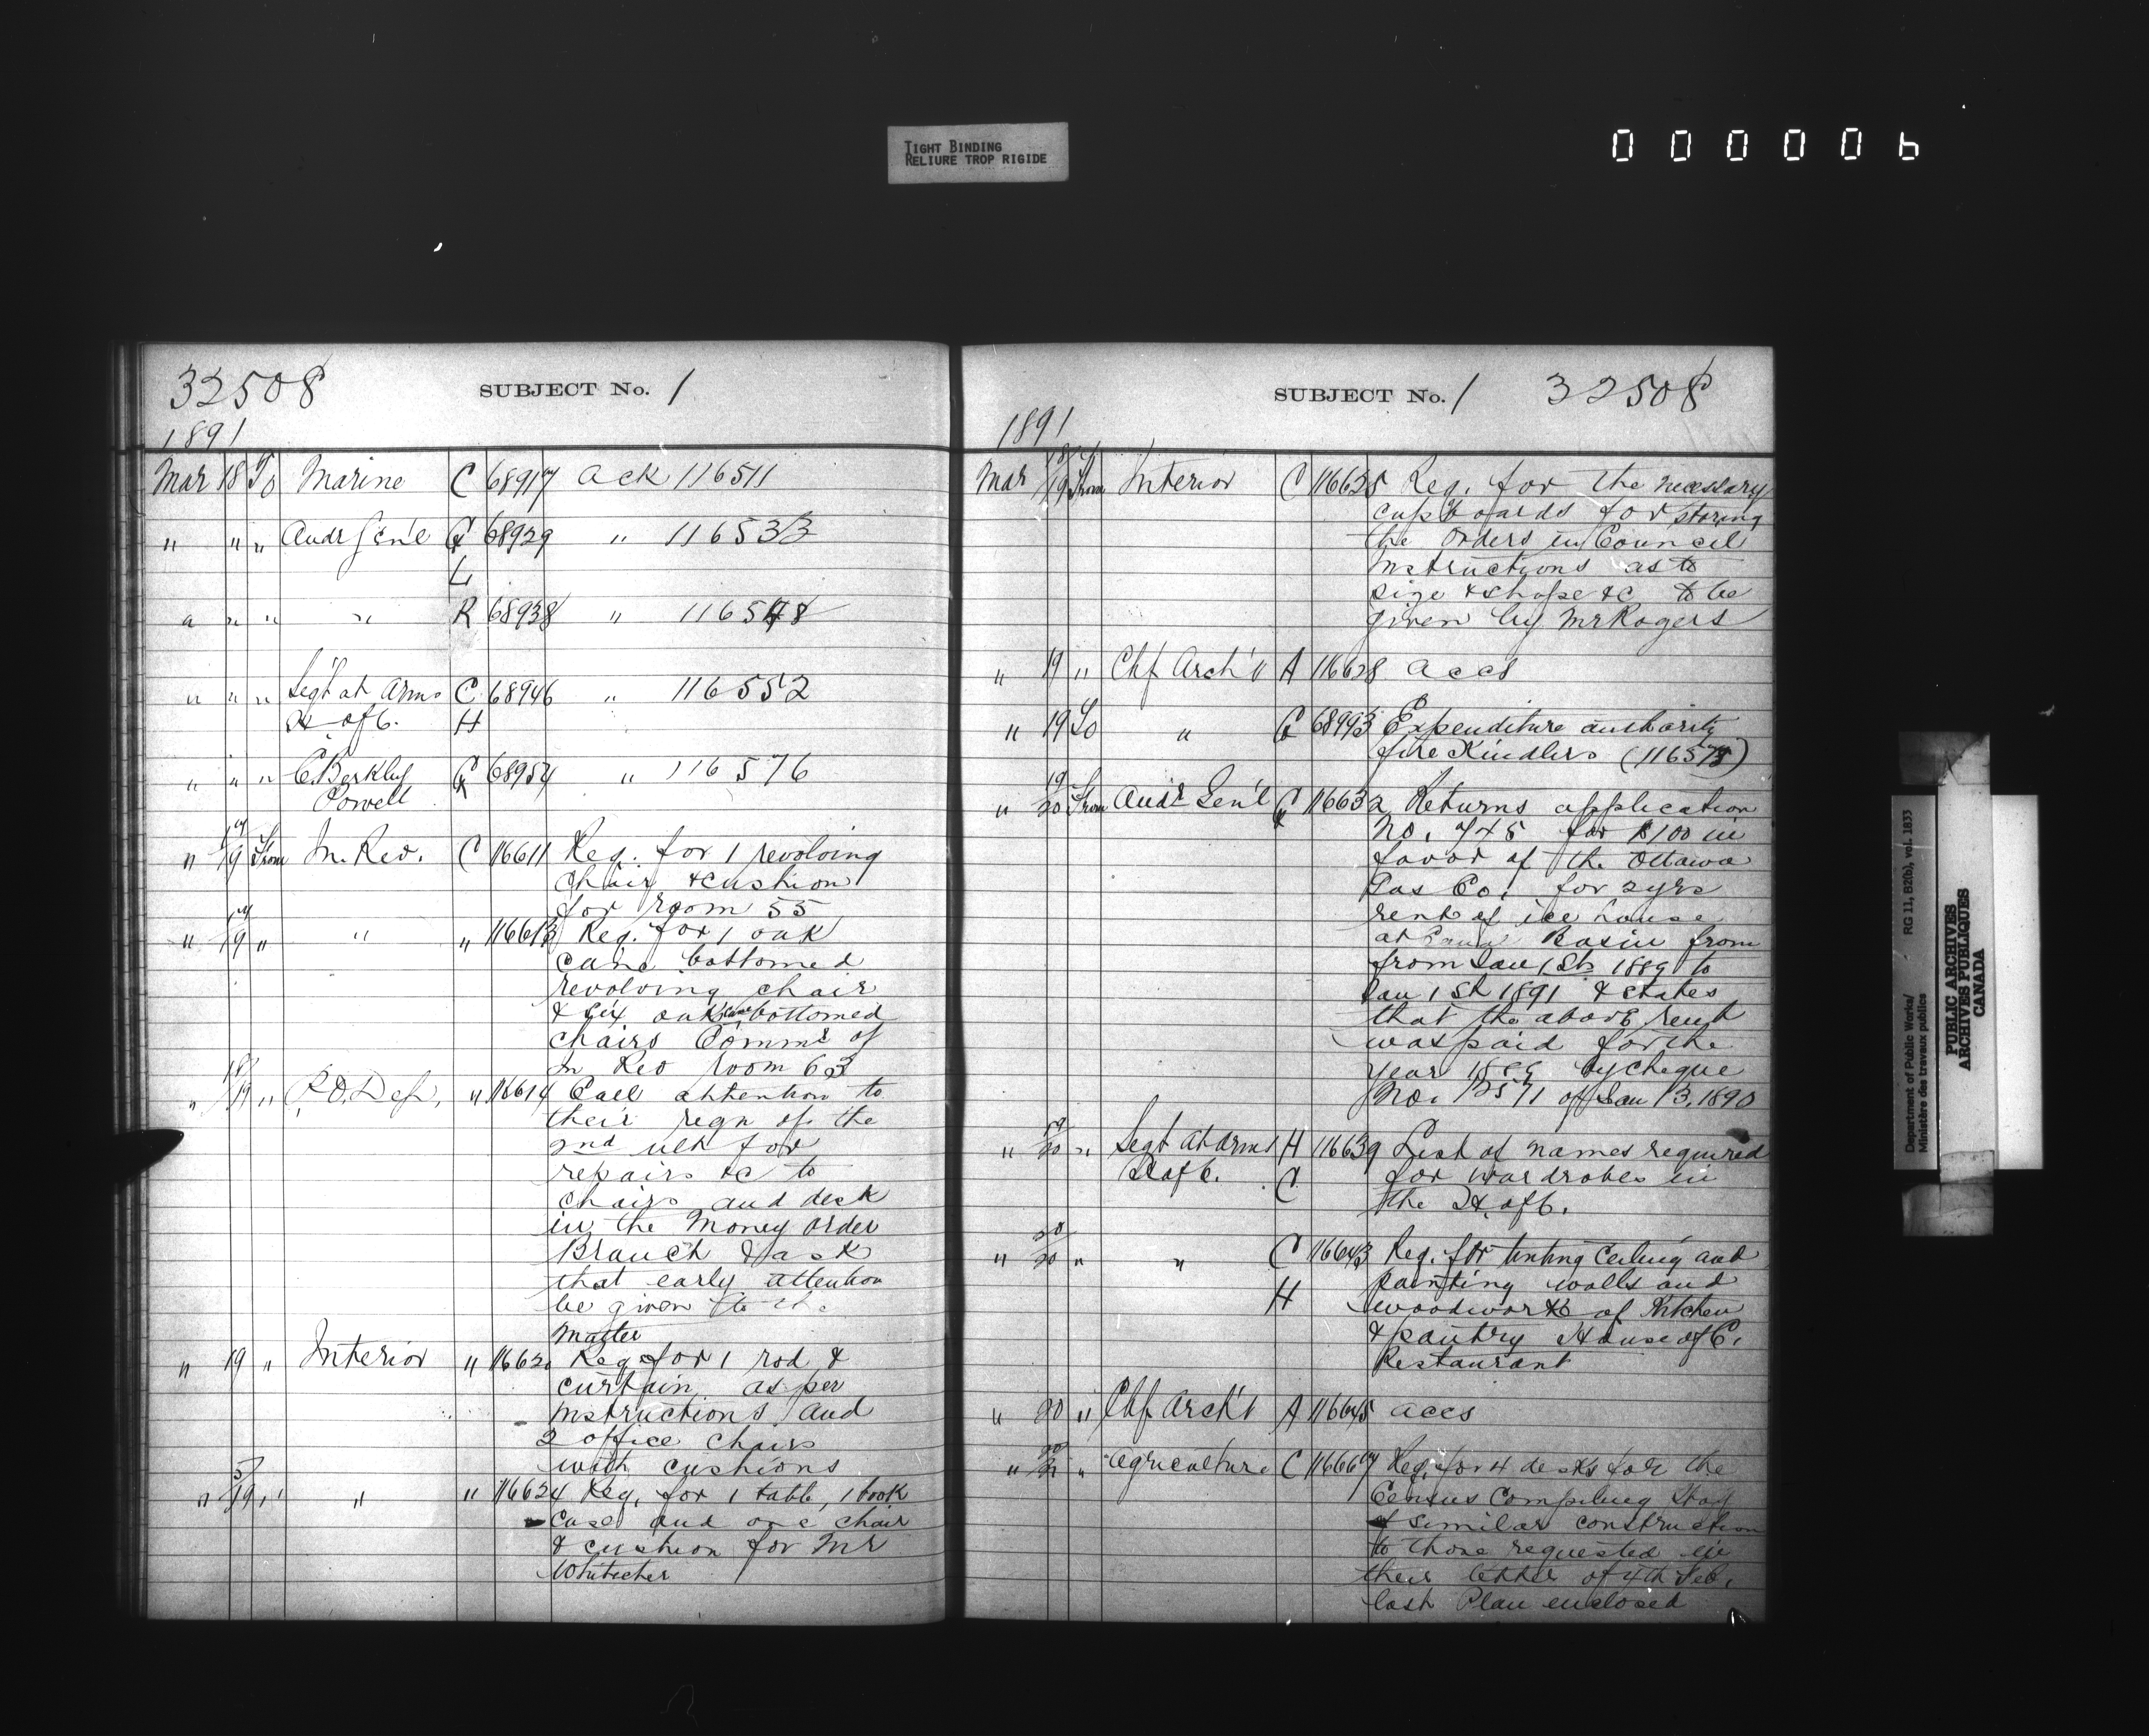 TIGHT BINDING
RELIURE TROP RIGIDE
000006
32508 SUBJECT No. 1
1891
Mar 18 To Marine C 68917 Ack 116511
" " " Audr Gen'l G 68929 " 116533
L
" " " " R 68938 " 116548
" " " Segt at Arms C 68946 " 116552
H of C. H
" " " C. Berkley G 68954 " 116576
Powell
17
" 19 From In. Rev. C 116611 Req. for 1 revolving
chair & cushion
for room 55
17
" 19 " " " 116613 Req. for 1 oak
cane bottomed
revolving chair
& six oak cane bottomed
chairs Commr of
In Rev room 63
18
" 19 " P.O. Dep. " 116614 Call attention to
their reqn of the
2nd ult for
repairs &c to
chairs and desk
in the Money Order
Branch & ask
that early attention
be given to the
matter
" 19 " Interior " 116620 Req. for 1 rod &
curtain as per
instructions and
2 office chairs
with cushions
5
" 19 " " " 116624 Req. for 1 table, 1 book
case and one chair
& cushion for Mr
SUBJECT No. 1 32508
1891
Mar 19 From Interior C 116625 Req. for the necessary
cupboards for storing
the Orders in Council
instructions as to
size & shape &c to be
given by Mr Rogers
" 19 " Chf Arch't A 116628 accs
" 19 To " G 68993 Expenditure authority
fire Kindlers (116575)
19
" 20 From Audr Gen'l G 116632 Returns application
No. 745 for $100 in
favor of the Ottawa
Gas Co. for 2 yrs
rent of ice house
at Canal Basin from
from Jan 1st 1889 to
Jan 1st 1891 & states
that the above rent
was paid for the
year 1889 by cheque
No. 12571 of Jan 13, 1890
19
" 20 " Segt at Arms H 116639 List of names required
H of C. C for wardrobes in
the H. of C.
20
" 20 " " C 116643 Req. for tinting ceiling and
H painting walls and
woodwork of Kitchen
& pantry House of C.
Restaurant
" 20 " Chf Arch't A 116645 accs
20
" 21 " Agriculture C 116667 Req. for 4 desks for the
Census Compiling Staff
of similar construction
to those requested in
their letter of 4th Feb.
last Plan enclosed
Department of Public Works/ RG 11, B2(b), vol. 1833
Ministère des travaux publics
PUBLIC ARCHIVES
ARCHIVES PUBLIQUES
CANADA